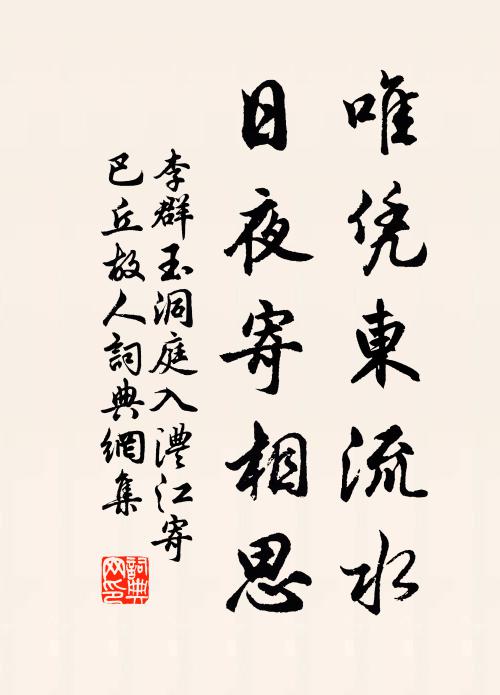 唯凭東流水
日夜寄相思
李群玉洞庭入澧江寄
巴丘故人詞典網集
詞典
网印